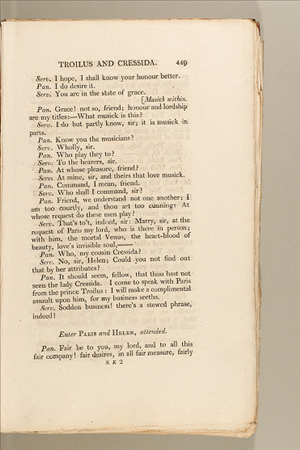 TROILUS AND CRESSIDA. 449
Serv. I hope, I shall know your honour better.
Pan. I do desire it.
Serv. You are in the state of grace.
[Musick within.
Pan. Grace! not so, friend; honour and lordship
are my titles:—What musick is this?
Serv. I do but partly know, sir; it is musick in
parts.
Pan. Know you the musicians?
Serv. Wholly, sir.
Pan. Who play they to?
Serv. To the hearers, sir.
Pan. At whose pleasure, friend?
Serv. At mine, sir, and theirs that love musick.
Pan. Command, I mean, friend.
Serv. Who shall I command, sir?
Pan. Friend, we understand not one another; I
am too courtly, and thou art too cunning: At
whose request do these men play?
Serv. That's to't, indeed, sir: Marry, sir, at the
request of Paris my lord, who is there in person;
with him, the mortal Venus, the heart-blood of
beauty, love's invisible soul,——
Pan. Who, my cousin Cressida?
Serv. No, sir, Helen; Could you not find out
that by her attributes?
Pan. It should seem, fellow, that thou hast not
seen the lady Cressida. I come to speak with Paris
from the prince Troilus: I will make a complimental
assault upon him, for my business seeths.
Serv. Sodden business! there's a stewed phrase,
indeed!
Enter PARIS and HELEN, attended.
Pan. Fair be to you, my lord, and to all this
fair company! fair desires, in all fair measure, fairly
K K 2